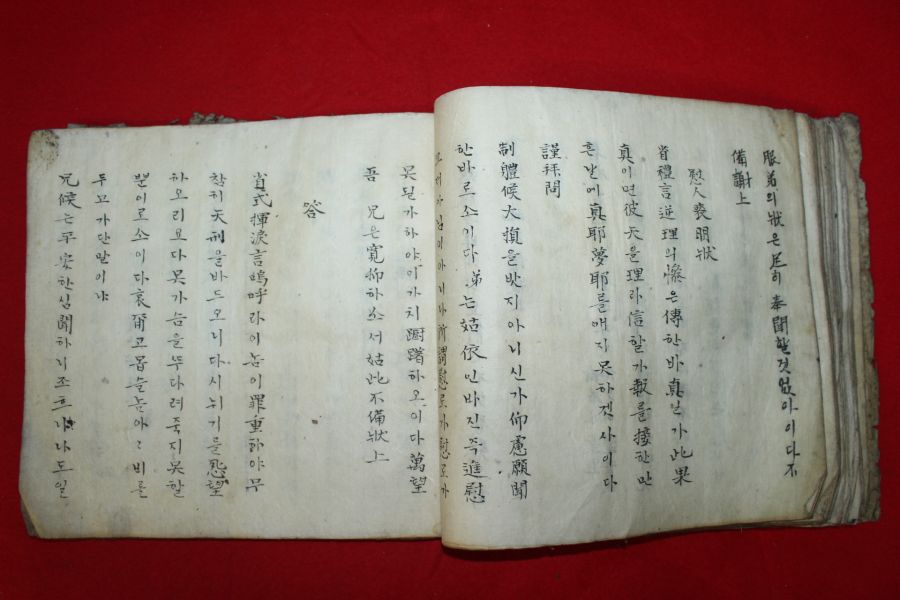 服弟의狀은足히奉聞할것업아이다不
備謝上
慰人喪明狀
省禮言逆理의慘은傳한바真인가此果
真이면彼天을理라信할가報를接한만
흔날에真耶夢耶를깨지못하겟사이다
謹拜問
制體候大損을밧지아니신가仰慮願聞
한바르소이다弟는姑依인바진즉進慰
못된가하야이가치躕躇하오이다萬望
吾 兄은寬抑하쇼서姑此不備狀上
答
省式揮淚言嗚呼라이놈이罪重하야무
참히天刑을바드오니다시뉘기를怨望
하오리요다못가슴을뚜다려죽지못할
뿐이로소이다哀爾고몹슬놈아々비를
두고가단말이냐
兄候는平安한심聞하니조흐나나도일